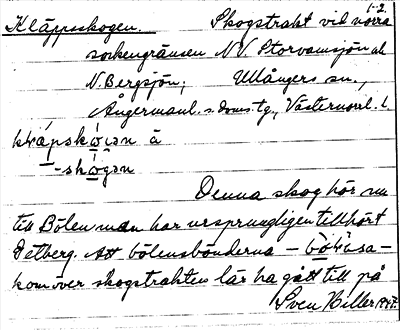 1-2.
Kläppsskogen. Skogstrakt vid norra
sockengränsen NV. Storvamsjön och
N. Bergsjön; Ullångers sn.,
Ångermanl. s. doms-tg., Västernorrl. l.
Denna skog hör nu
till Bölen man har ursprungligen tillhört
Detberg. Att bölensbönderna –
kom över skogstrakten lär ha gått till på
Sven Hiller 1947